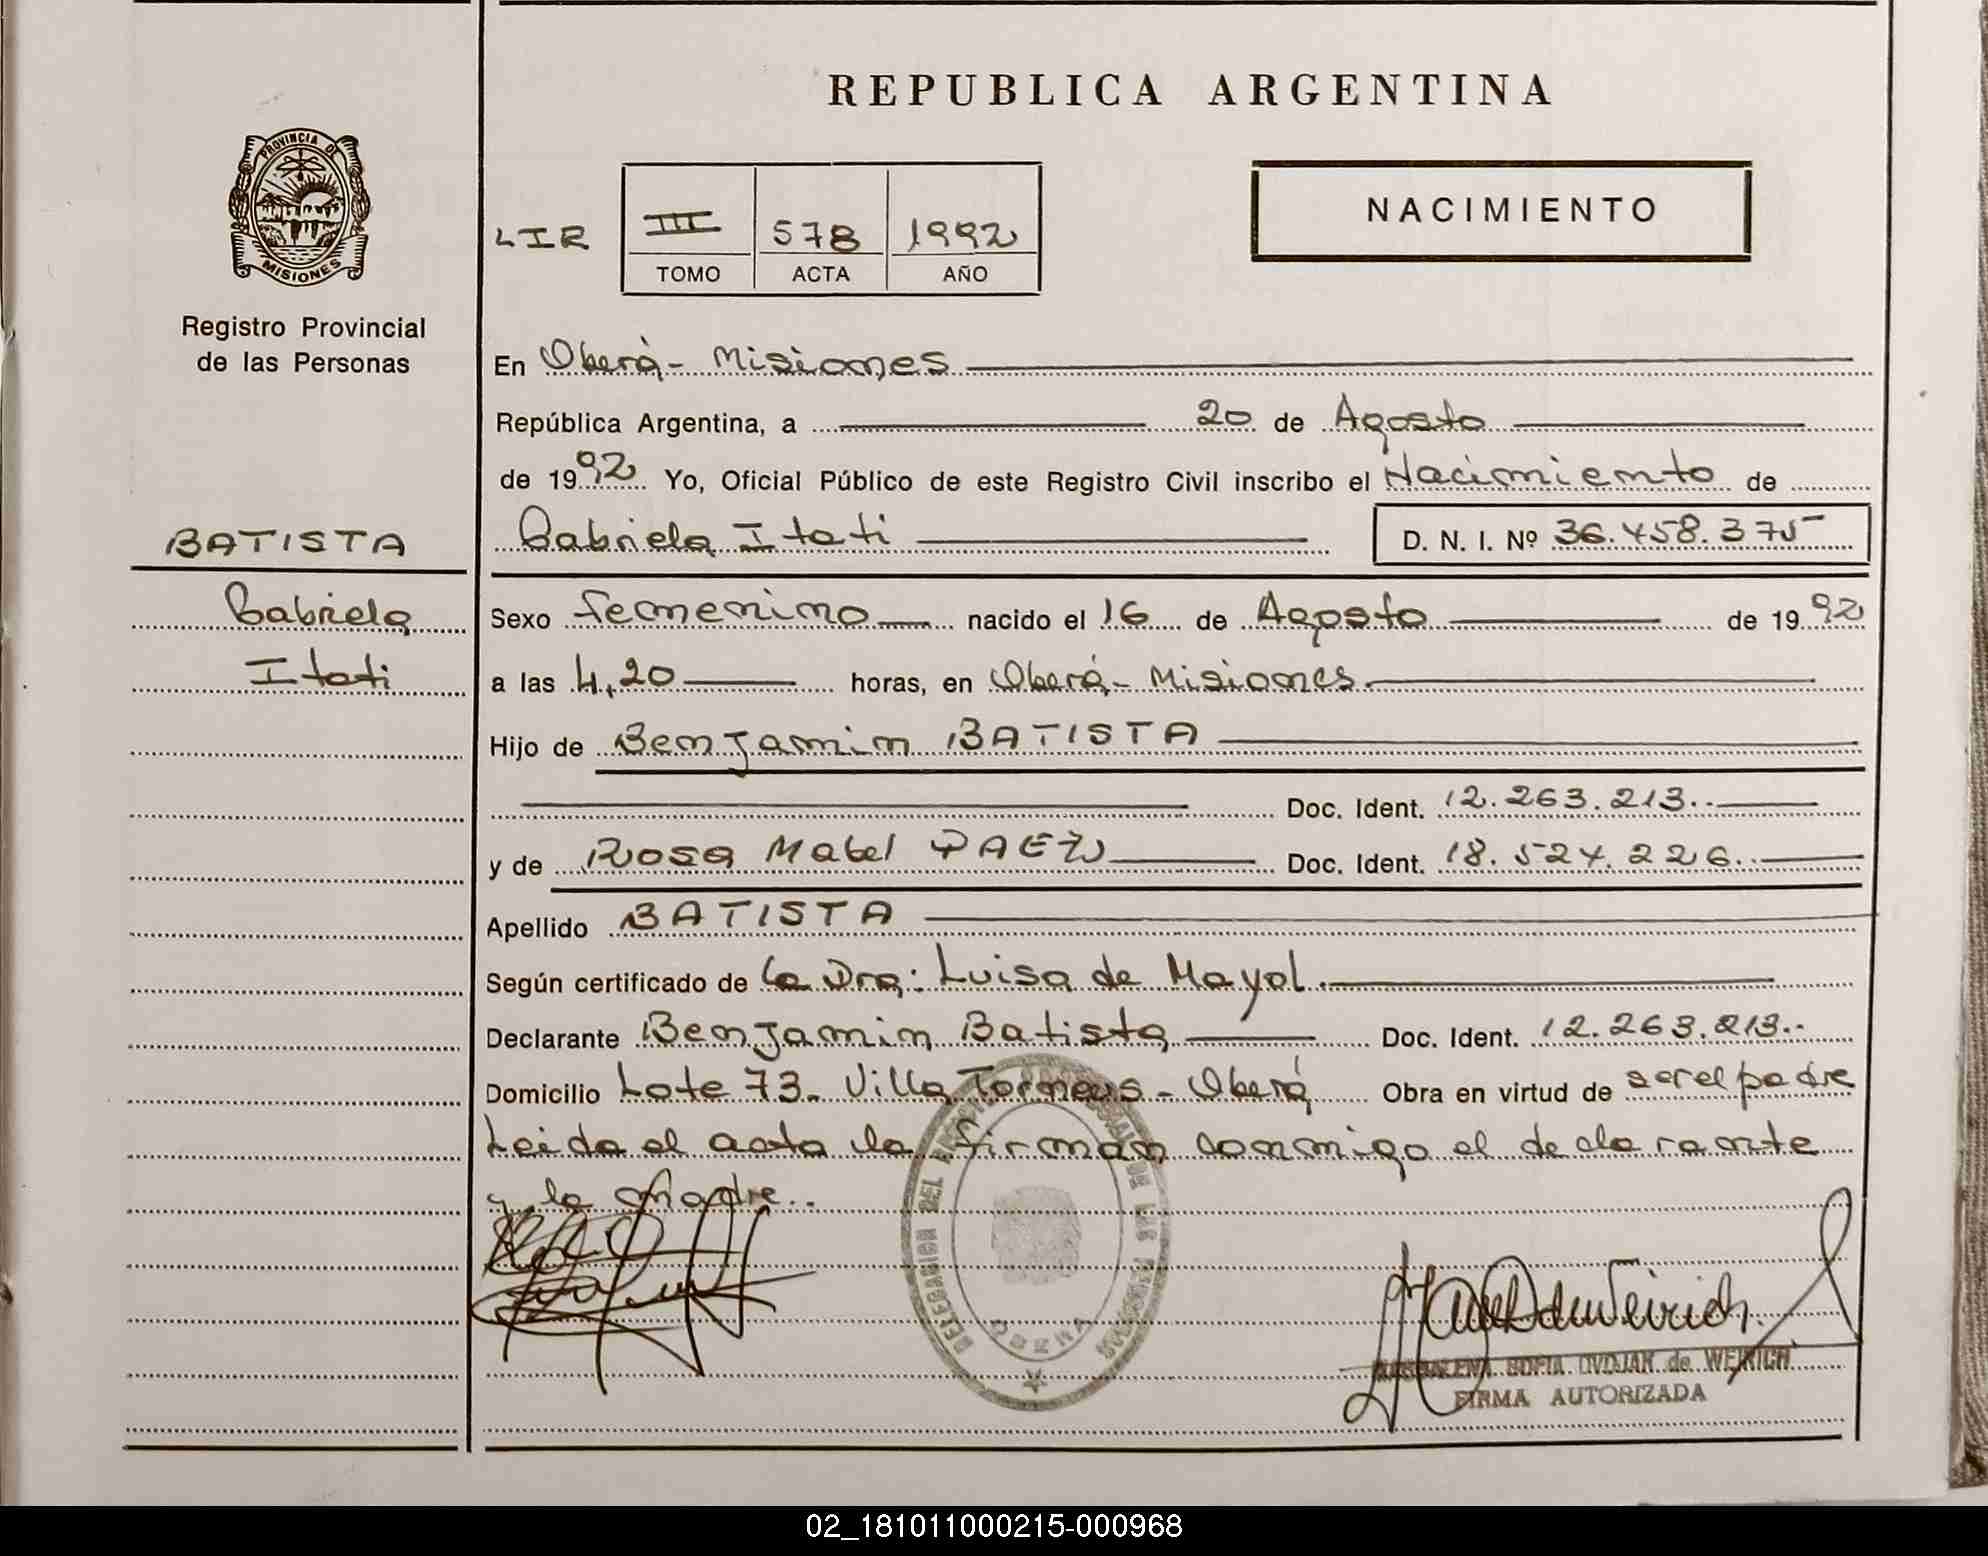 REPUBLICA ARGENTINA
PROVINCIA DE
MISIONES
Registro Provincial
de las Personas
LIR III 578 1992
TOMO ACTA AÑO
NACIMIENTO
En Oberá - Misiones
República Argentina, a 20 de Agosto
de 1992 Yo, Oficial Público de este Registro Civil inscribo el Nacimiento de
BATISTA
Gabriela Itati D. N. I. Nº 36.458.375
Gabriela
Itati
Sexo femenino nacido el 16 de Agosto de 1992
a las 4,20 horas, en Oberá - Misiones.
Hijo de Benjamin BATISTA
Doc. Ident. 12.263.213.-
y de Rosa Mabel PAEZ Doc. Ident. 18.524.226.-
Apellido BATISTA
Según certificado de la Dra: Luisa de Mayol.
Declarante Benjamin Batista Doc. Ident. 12.263.213.-
Domicilio Lote 73 - Villa - Oberá Obra en virtud de ser el padre
Leida el acta la firman conmigo el declarante
y la Madre..
DELEGACION DEL DE LAS PERSONAS
OBERA
de WEIRICH
FIRMA AUTORIZADA
02_181011000215-000968